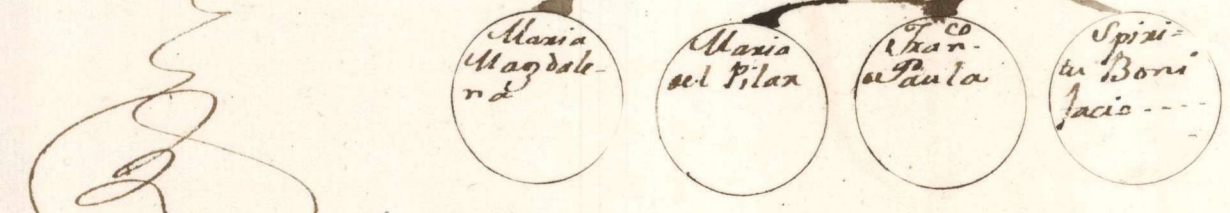 Maria
Magdale-
na
Maria
del Pilar
Fran.co
de Paula
Spiri=
tu Boni
facio ----